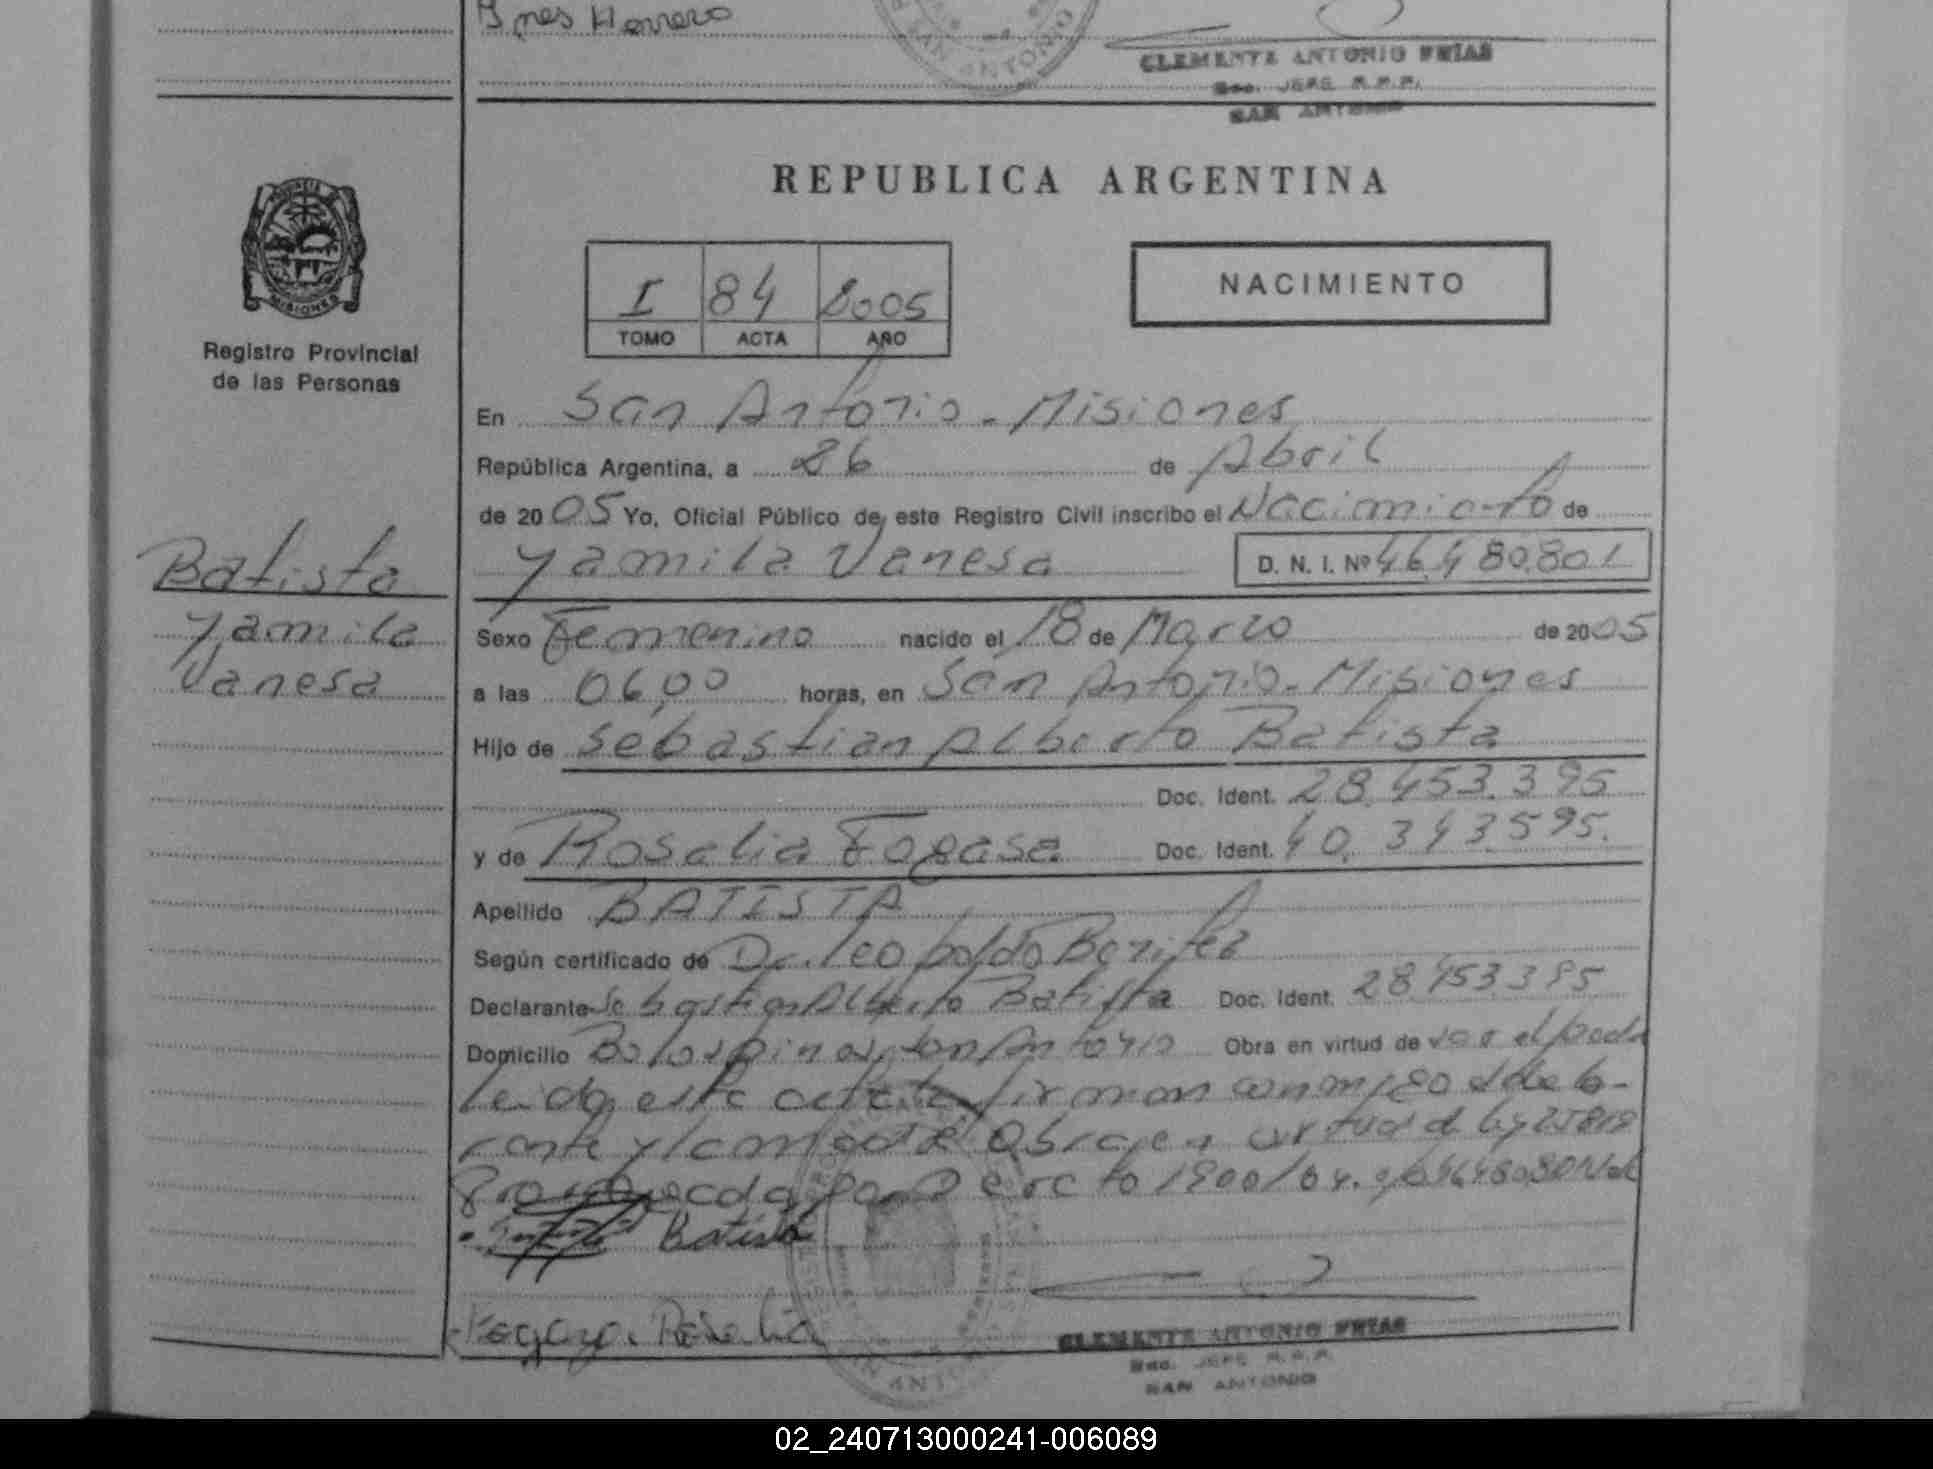 Ines Herrero
SAN ANTONIO
CLEMENTE ANTONIO FRIAS
Sec. JEFE R.P.P.
SAN ANTONIO
REPUBLICA ARGENTINA
MISIONES
Registro Provincial
de las Personas
I 84 2005
TOMO ACTA AÑO
NACIMIENTO
En San Antonio - Misiones
República Argentina, a 26 de Abril
de 2005 Yo, Oficial Público de este Registro Civil inscribo el Nacimiento de
Yamila Vanesa D. N. I. Nº 46.480.801
Batista
Yamila
Vanesa
Sexo Femenino nacido el 18 de Marzo de 2005
a las 06,00 horas, en San Antonio - Misiones
Hijo de Sebastian Alberto Batista
Doc. Ident. 28.453.395
y de Rosalia Fogasa Doc. Ident. 40.343.595.
Apellido BATISTA
Según certificado de Dr. Leopoldo Benitez
Declarante Sebastian Alberto Batista Doc. Ident. 28.453.395
Domicilio San Antonio Obra en virtud de ser el padre
Leida esta acta la firman conmigo el decla-
rante y la madre Obra en virtud d ley 25819
Prorrogada por Decreto 1900/04. 46480801 Vale
Batista
Fogaza Rosalia
CLEMENTE ANTONIO FRIAS
Sec. JEFE R.P.P.
SAN ANTONIO
02_240713000241-006089